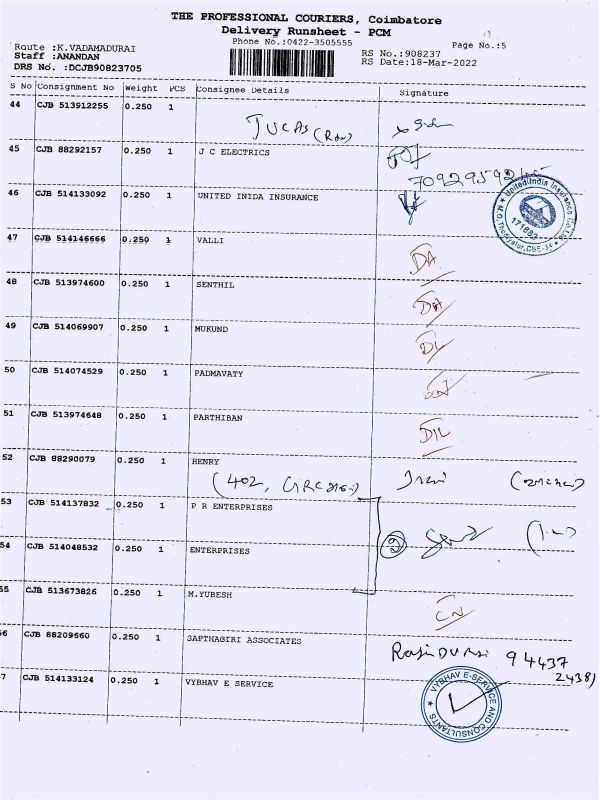 THE PROFESSIONAL COURIERS, Coimbatore
Delivery Runsheet - PCM
Phone No.:0422-3505555
Page No.:5
Route :K.VADAMADURAI
RS No.:908237
Staff :ANANDAN
RS Date:18-Mar-2022
DRS No. :DCJB90823705
S No Consignment No Weight PCS Consignee Details Signature
44 CJB 513912255 0.250 1
45 CJB 88292157 0.250 1 J C ELECTRICS
46 CJB 514133092 0.250 1 UNITED INIDA INSURANCE
United India Insurance Co. Ltd.
171682
47 CJB 514146666 0.250 1 VALLI DA
48 CJB 513974600 0.250 1 SENTHIL DA
49 CJB 514069907 0.250 1 MUKUND DL
50 CJB 514074529 0.250 1 PADMAVATY
51 CJB 513974648 0.250 1 PARTHIBAN DIL
52 CJB 88290079 0.250 1 HENRY
(402,
53 CJB 514137832 0.250 1 P R ENTERPRISES
54 CJB 514048532 0.250 1 ENTERPRISES
2
55 CJB 513673826 0.250 1 M.YUBESH CN
56 CJB 88209660 0.250 1 SAPTHAGIRI ASSOCIATES
94437
57 CJB 514133124 0.250 1 VYBHAV E SERVICE
VYBHAV E-SERVICE AND CONSULTANTS